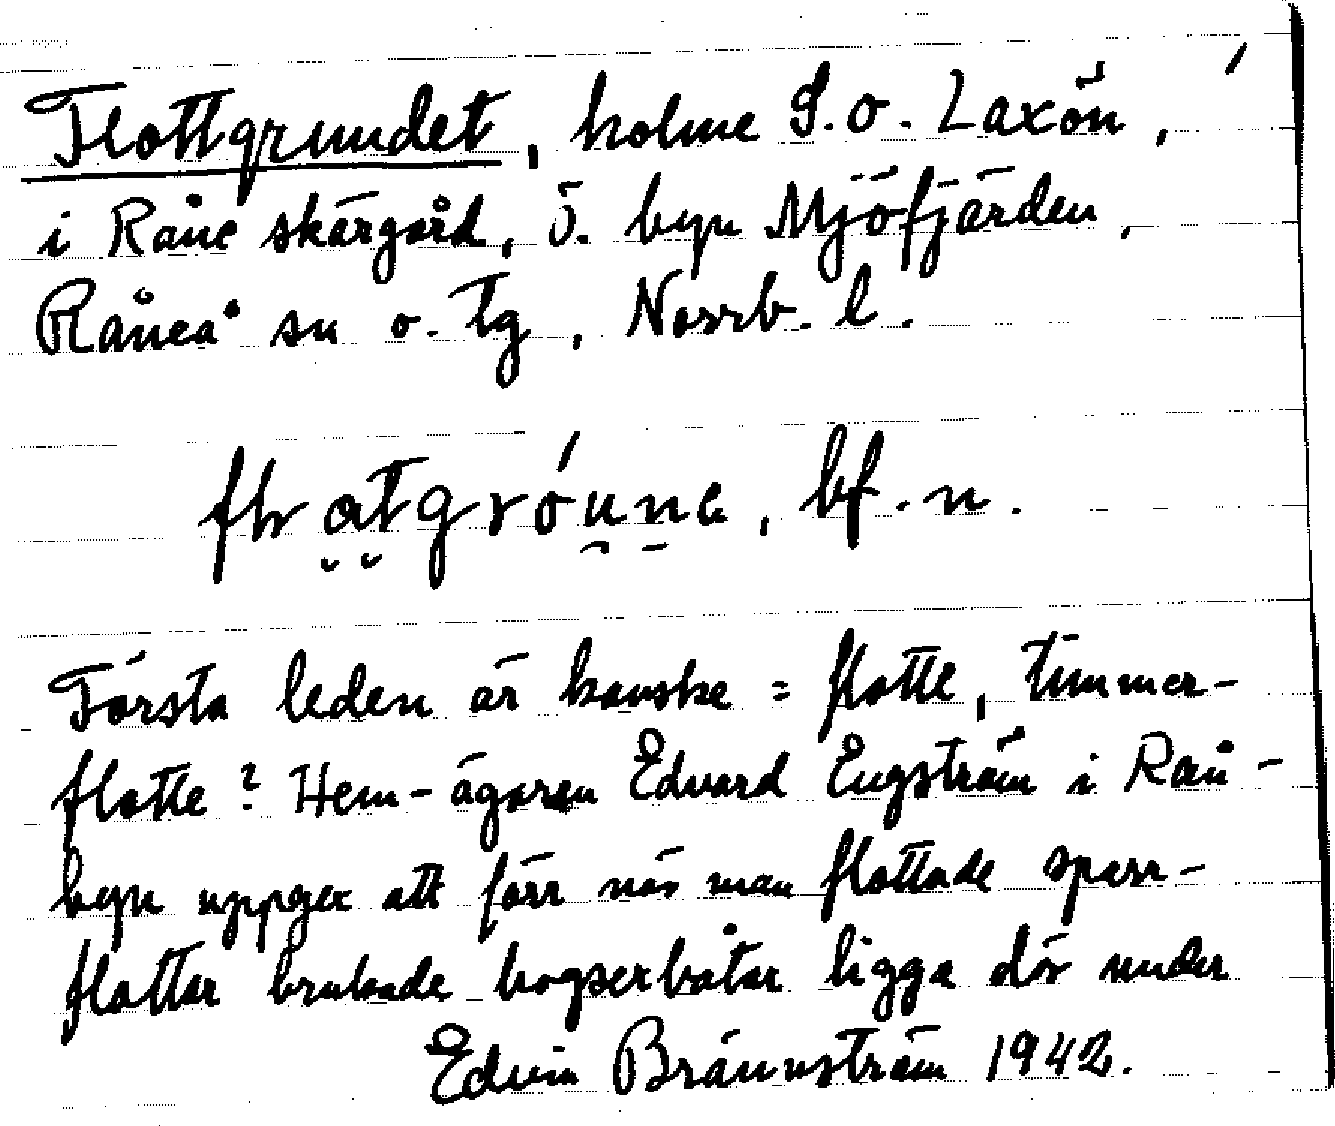 Flottgrundet, holme S.O. Laxön,
i Råne skärgård, ö. byn Mjöfjärden,
Råneå sn o. tg, Norrb. l.
flratgróuna, bf. n.
Första leden är kanske = flotte, timmer-
flotte? Hem-ägaren Edvard Engström i Rån-
byn uppger att förr när man flottade sparr-
flottar brukade bogserbåtar ligga där under
Edvin Brännström 1942.